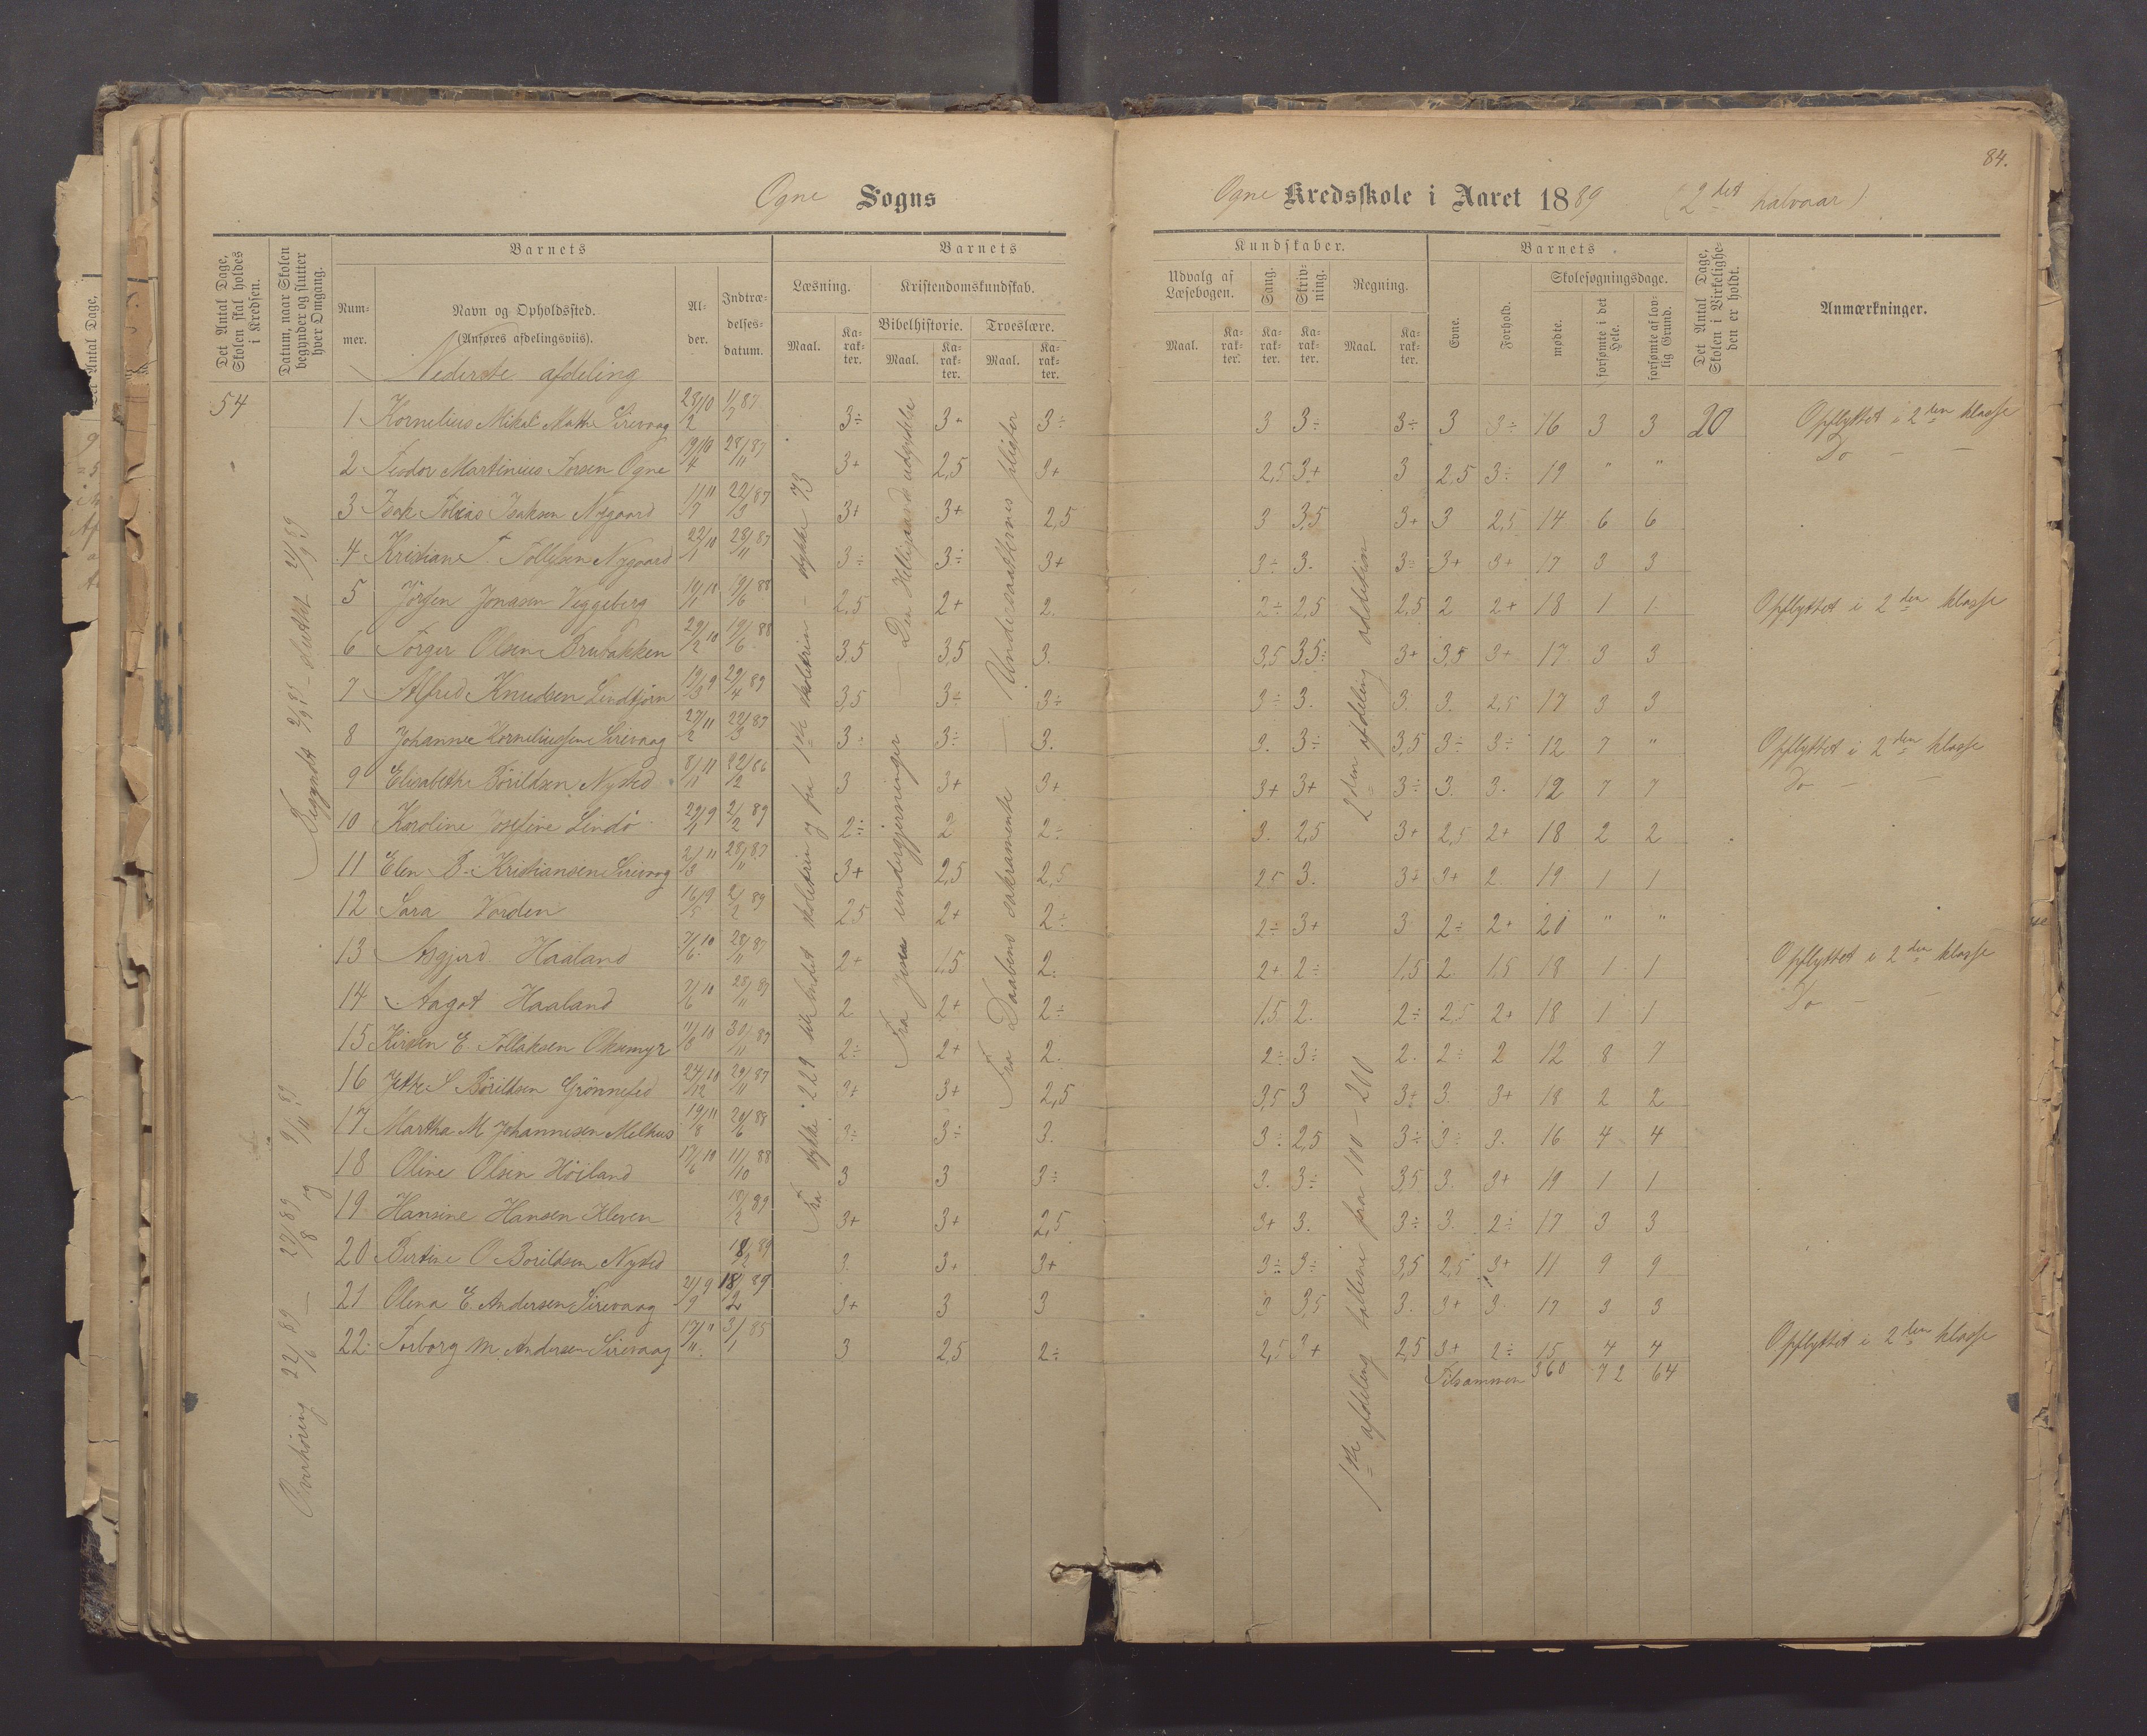 84.
Ogne Sogns
Ogne Kredsskole i Aaret 1889 (2det halvaar)
Det Antal Dage, Skolen skal holdes i Kredsen.
Datum, naar Skolen begynder og slutter hver Omgang.
Barnets
Nummer.
Navn og Opholdssted.
(Anføres afdelingsviis).
Alder.
Indtrædelsesdatum.
Barnets
Læsning.
Kristendomskundskab.
Bibelhistorie. Troeslære.
Maal. Karakter. Maal. Karakter. Maal. Karakter.
Kundskaber.
Udvalg af Læsebogen. Sang. Skrivning. Regning.
Maal. Karakter. Karakter. Karakter. Maal. Karakter.
Barnets
Evne. Forhold.
Skolesøgningsdage.
mødte. forsømte i det Hele. forsømte af lovlig Grund.
Det Antal Dage, Skolen i Virkeligheden er holdt.
Anmærkninger.
Nederste afdeling
54
Begyndt 2/9 89 – sluttet 21/9 89
Overhøring 22/6 89 – 27/8 89 og 9/11 89
Fra stykke 229 til bindet skoletrin og fra 1ste skoletrin – stykke 73
Fra Jesu undergjerninger – Den Helligaands udgydelse
Fra Daabens sakramente – Undersaatternes pligter
1ste afdeling tallene fra 100 – 200
2den afdeling addition
1 Kornelius Mikal Mathe Sirevaag 23/2 10 1/7 87 3÷ 3+ 3÷ 3 3÷ 3÷ 3 3÷ 16 3 3 20 Opflyttet i 2den klasse
2 Teodor Martinius Torsen Ogne 19/4 10 28/11 87 3+ 2,5 3+ 2,5 3+ 3 2,5 3÷ 19 " " Do – –
3 Isak Tobias Isaksen Nygaard 11/7 11 22/3 87 3+ 3+ 2,5 3 3,5 3+ 3 2,5 14 6 6
4 Kristiane T. Tollefsen Nygaard 22/1 10 28/11 87 3÷ 3÷ 3+ 3÷ 3. 3÷ 3+ 3+ 17 3 3
5 Jörgen Jonasen Veggeberg 10/1 10 19/6 88 2,5 2+ 2. 2÷ 2,5 2,5 2 2+ 18 1 1 Opflyttet i 2den klasse
6 Torger Olsen Brubakken 29/2 10 19/6 88 3,5 3,5 3. 3,5 3,5÷ 3+ 3,5 3+ 17 3 3
7 Alfred Knudsen Lindtjörn 19/3 9 29/4 89 3,5 3÷ 3÷ 3÷ 3. 3. 3. 2,5 17 3 3
8 Johanne Korneliussen Sirevaag 27/2 11 22/3 87 3÷ 3÷ 3. 3. 3÷ 3,5 3÷ 3÷ 12 7 " Opflyttet i 2den klasse
9 Elisabethe Böreldsen Nysted 8/11 11 22/12 86 3 3+ 3+ 3+ 3+ 3÷ 3. 3. 12 7 7 Do – –
10 Karoline Josefine Lindö 29/1 9 2/2 89 2÷ 2 2÷ 3. 2,5 3+ 2,5 2+ 18 2 2
11 Elen B. Kristiansen Sirevaag 2/3 11 28/11 87 3+ 2,5 2,5 2,5 3. 3+ 3+ 2 19 1 1
12 Sara Varden 16/5 9 2/2 89 2,5 2+ 2÷ 2÷ 3+ 3 2÷ 2+ 20 " "
13 Asgjerd Haaland 7/6 10 28/11 87 2+ 1,5 2. 2+ 2÷ 1,5 2 1,5 18 1 1 Opflyttet i 2den klasse
14 Aagot Haaland 7/6 10 28/11 87 2 2+ 2÷ 1,5 2. 2÷ 2,5 2+ 18 1 1 Do – –
15 Kirsten E. Tollaksen Oksemyr 11/8 10 30/11 87 2÷ 2+ 2. 2÷ 3÷ 2. 2÷ 2 12 8 7
16 Jethe S Böreldsen Grönnesed 24/12 10 29/11 87 3+ 3+ 2,5 3,5 3 3+ 3. 3+ 18 2 2
17 Martha M. Johannesen Melhus 19/8 11 20/6 88 3÷ 3÷ 3. 3÷ 2,5 3÷ 3÷ 3. 16 4 4
18 Oline Olsen Höiland 17/6 10 11/10 88 3 3 3÷ 3. 3÷ 3,5 3. 3+ 19 1 1
19 Hansine Hansen Kleven 18/2 89 3+ 3+ 2,5 3+ 3. 3÷ 3. 2÷ 17 3 3
20 Bertine O Boreldsen Nysted 18/2 89 3. 3+ 3+ 3÷ 3÷ 3,5 2,5 3+ 11 9 9
21 Olena E. Andersen Sirevaag 21/9 9 18/2 89 3+ 3 3 3 3,5 3. 3+ 3. 17 3 3
22 Torborg M. Andersen Sirevaag 17/11 3/1 85 3 2,5 2÷ 2,5 3+ 2,5 3+ 2÷ 15 4 4 Opflyttet i 2den klasse
Tilsammen 360 72 64